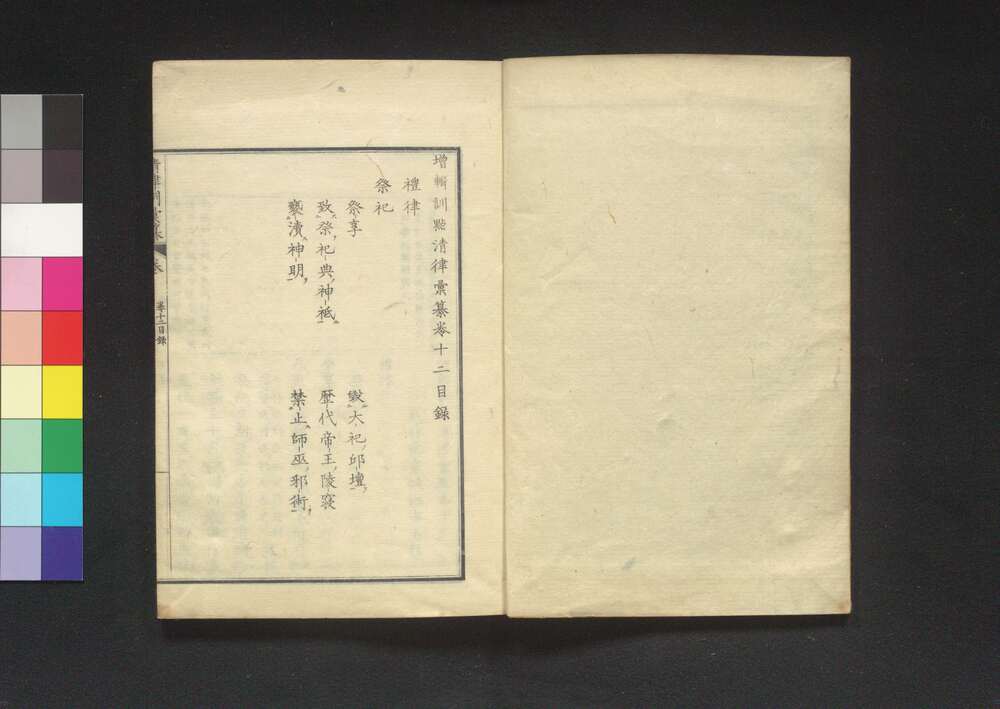 增輯訓點清律彙纂卷十二目錄
禮律
祭祀
祭享
毀大祀邱壇
致祭祀典神祗
歷代帝王陵寢
褻瀆神明
禁止師巫邪術
卷十二目錄